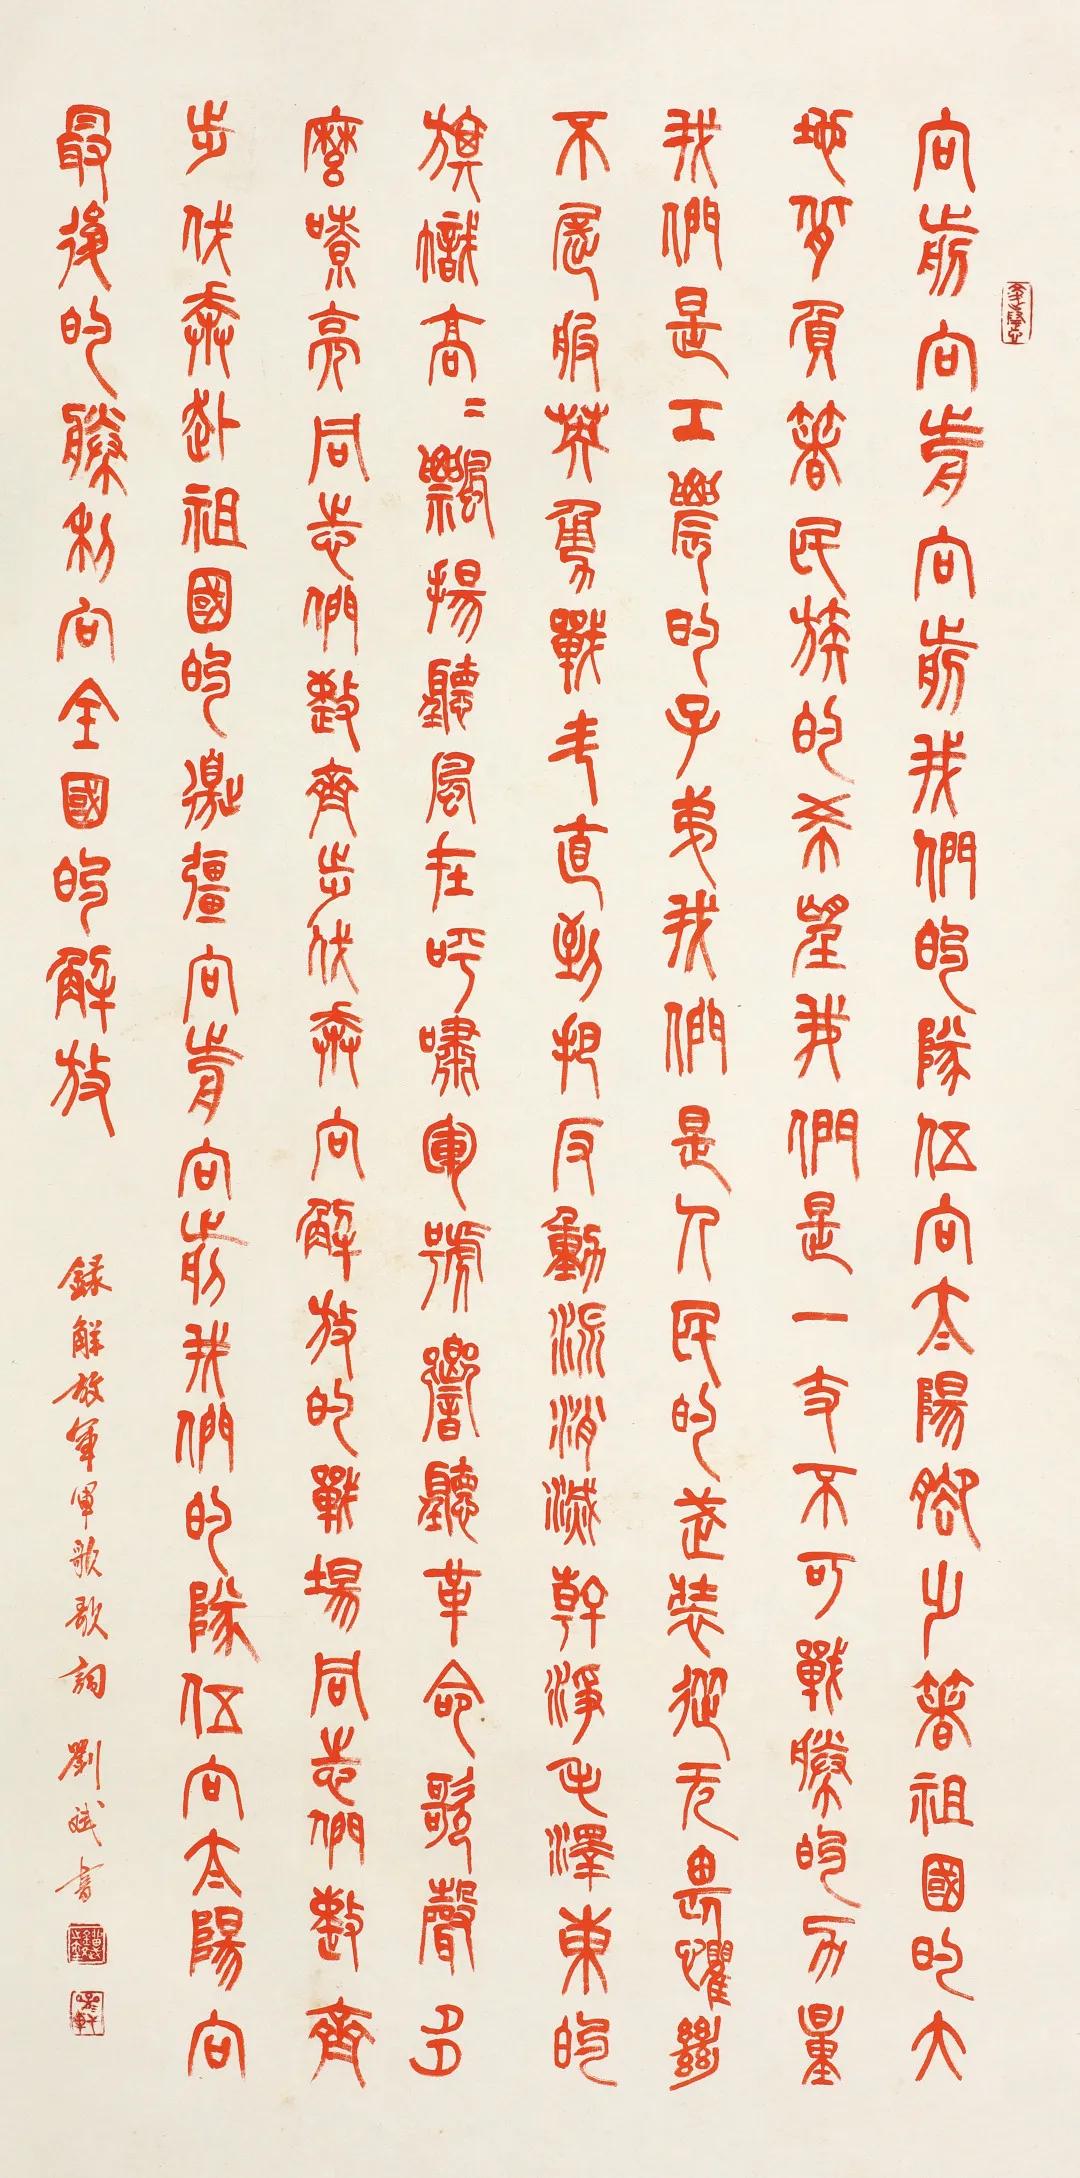 向前向前向前我們的隊伍向太陽腳步著祖國的大
地背負著民族的希望我們是一支不可戰勝的力量
我們是工農的子弟我們是人民的武裝從无畏懼絕
不屈服英勇戰鬥直到把反動派消滅乾淨毛澤東的
旗幟高〻飄揚聽風在呼嘯軍號響聽革命歌聲多
麼嘹亮同志們整齊步伐奔向解放的戰場同志們整齊
步伐奔赴祖國的邊疆向前向前我們的隊伍向太陽向
最後的勝利向全國的解放
錄解放軍軍歌歌詞 劉斌書